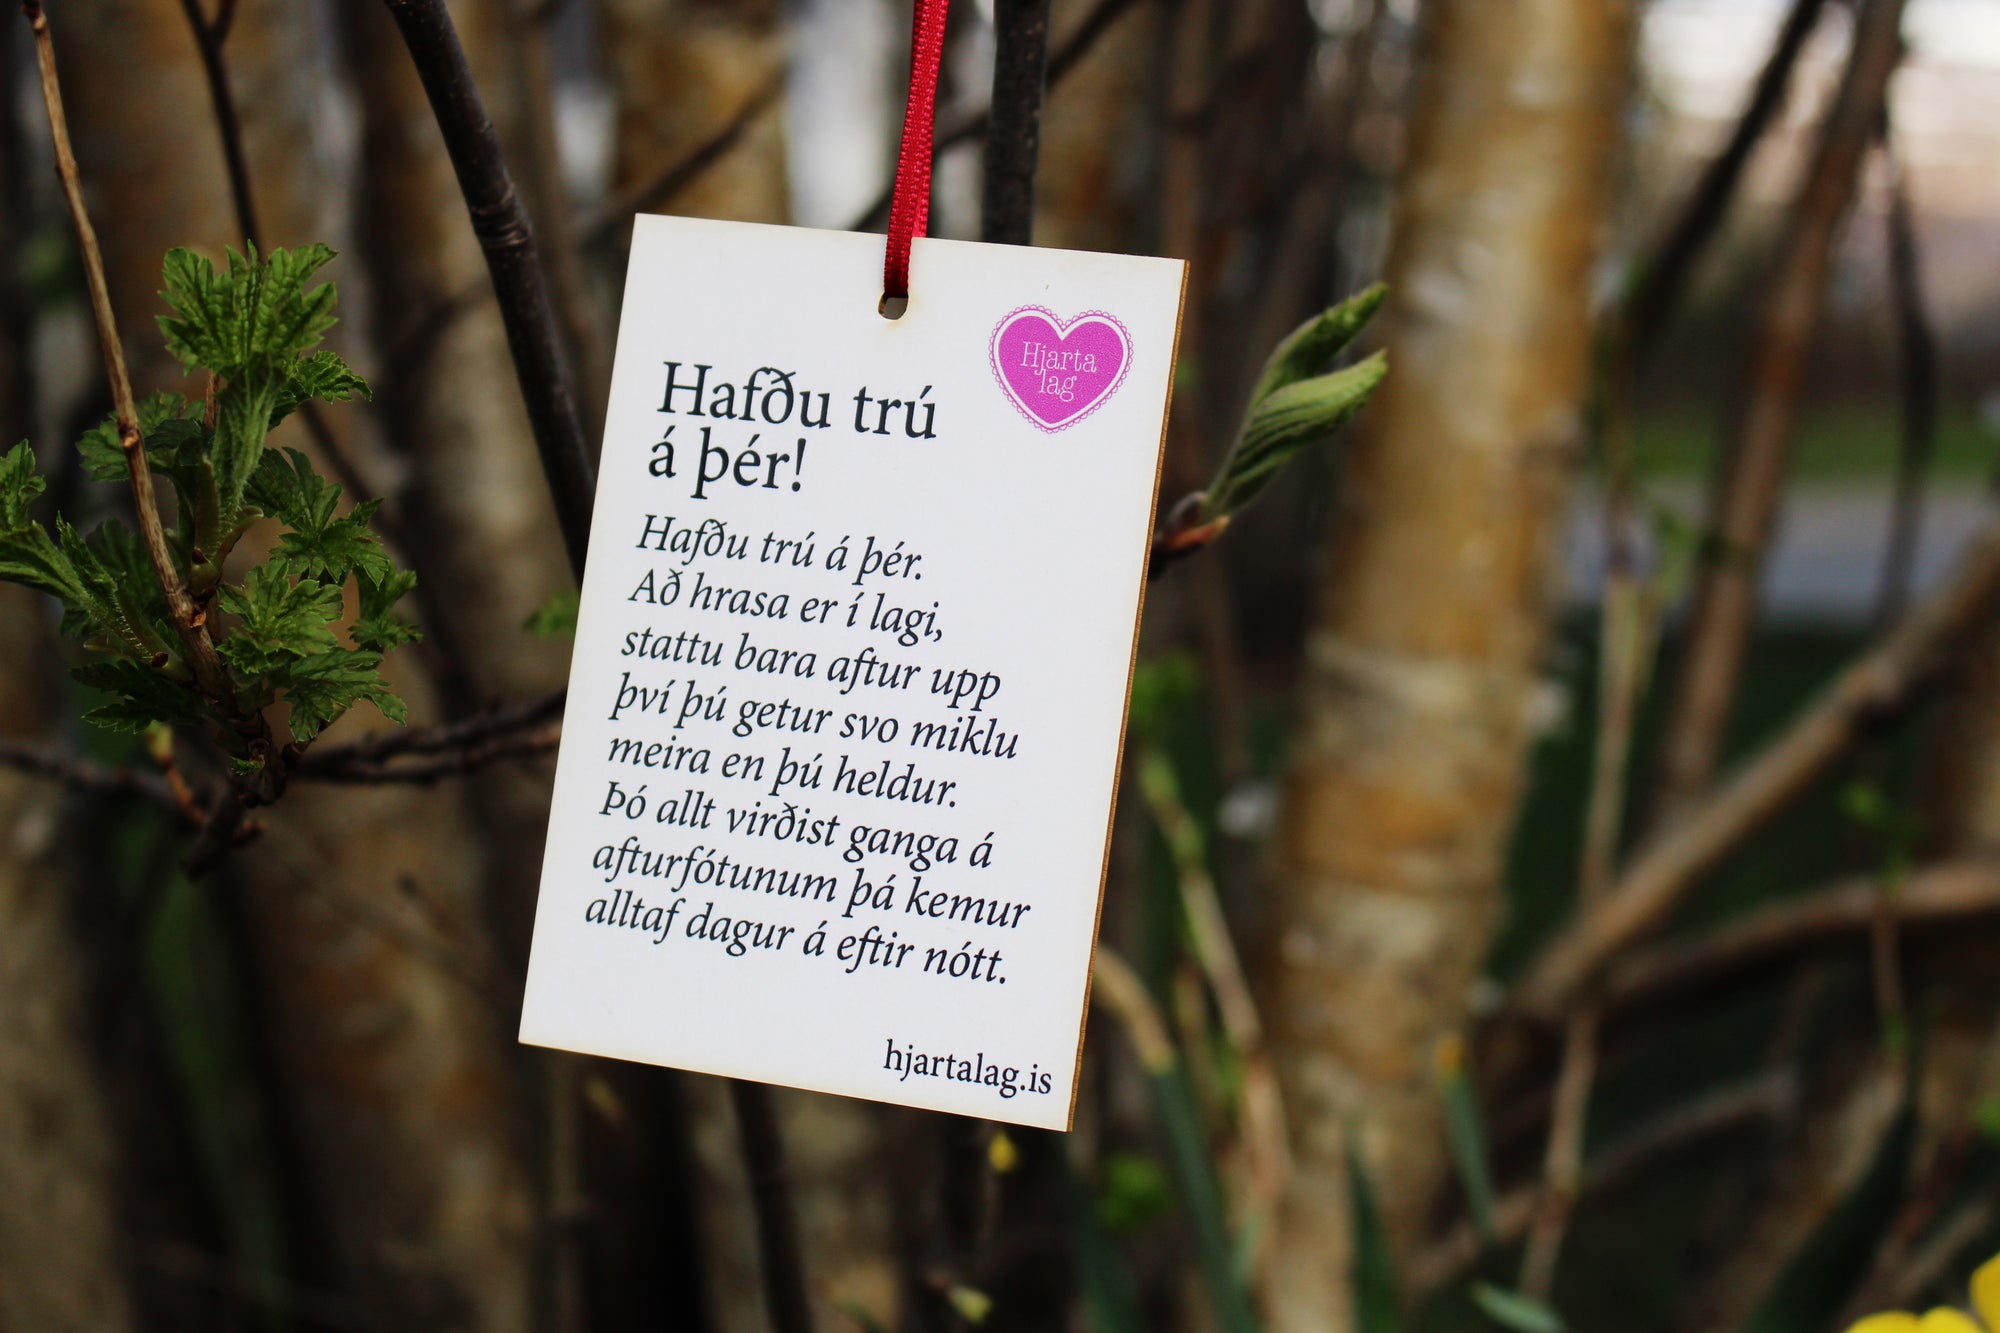 Hjarta
lag
Hafðu trú
á þér!
Hafðu trú á þér.
Að hrasa er í lagi,
stattu bara aftur upp
því þú getur svo miklu
meira en þú heldur.
Þó allt virðist ganga á
afturfótunum þá kemur
alltaf dagur á eftir nótt.
hjartalag.is